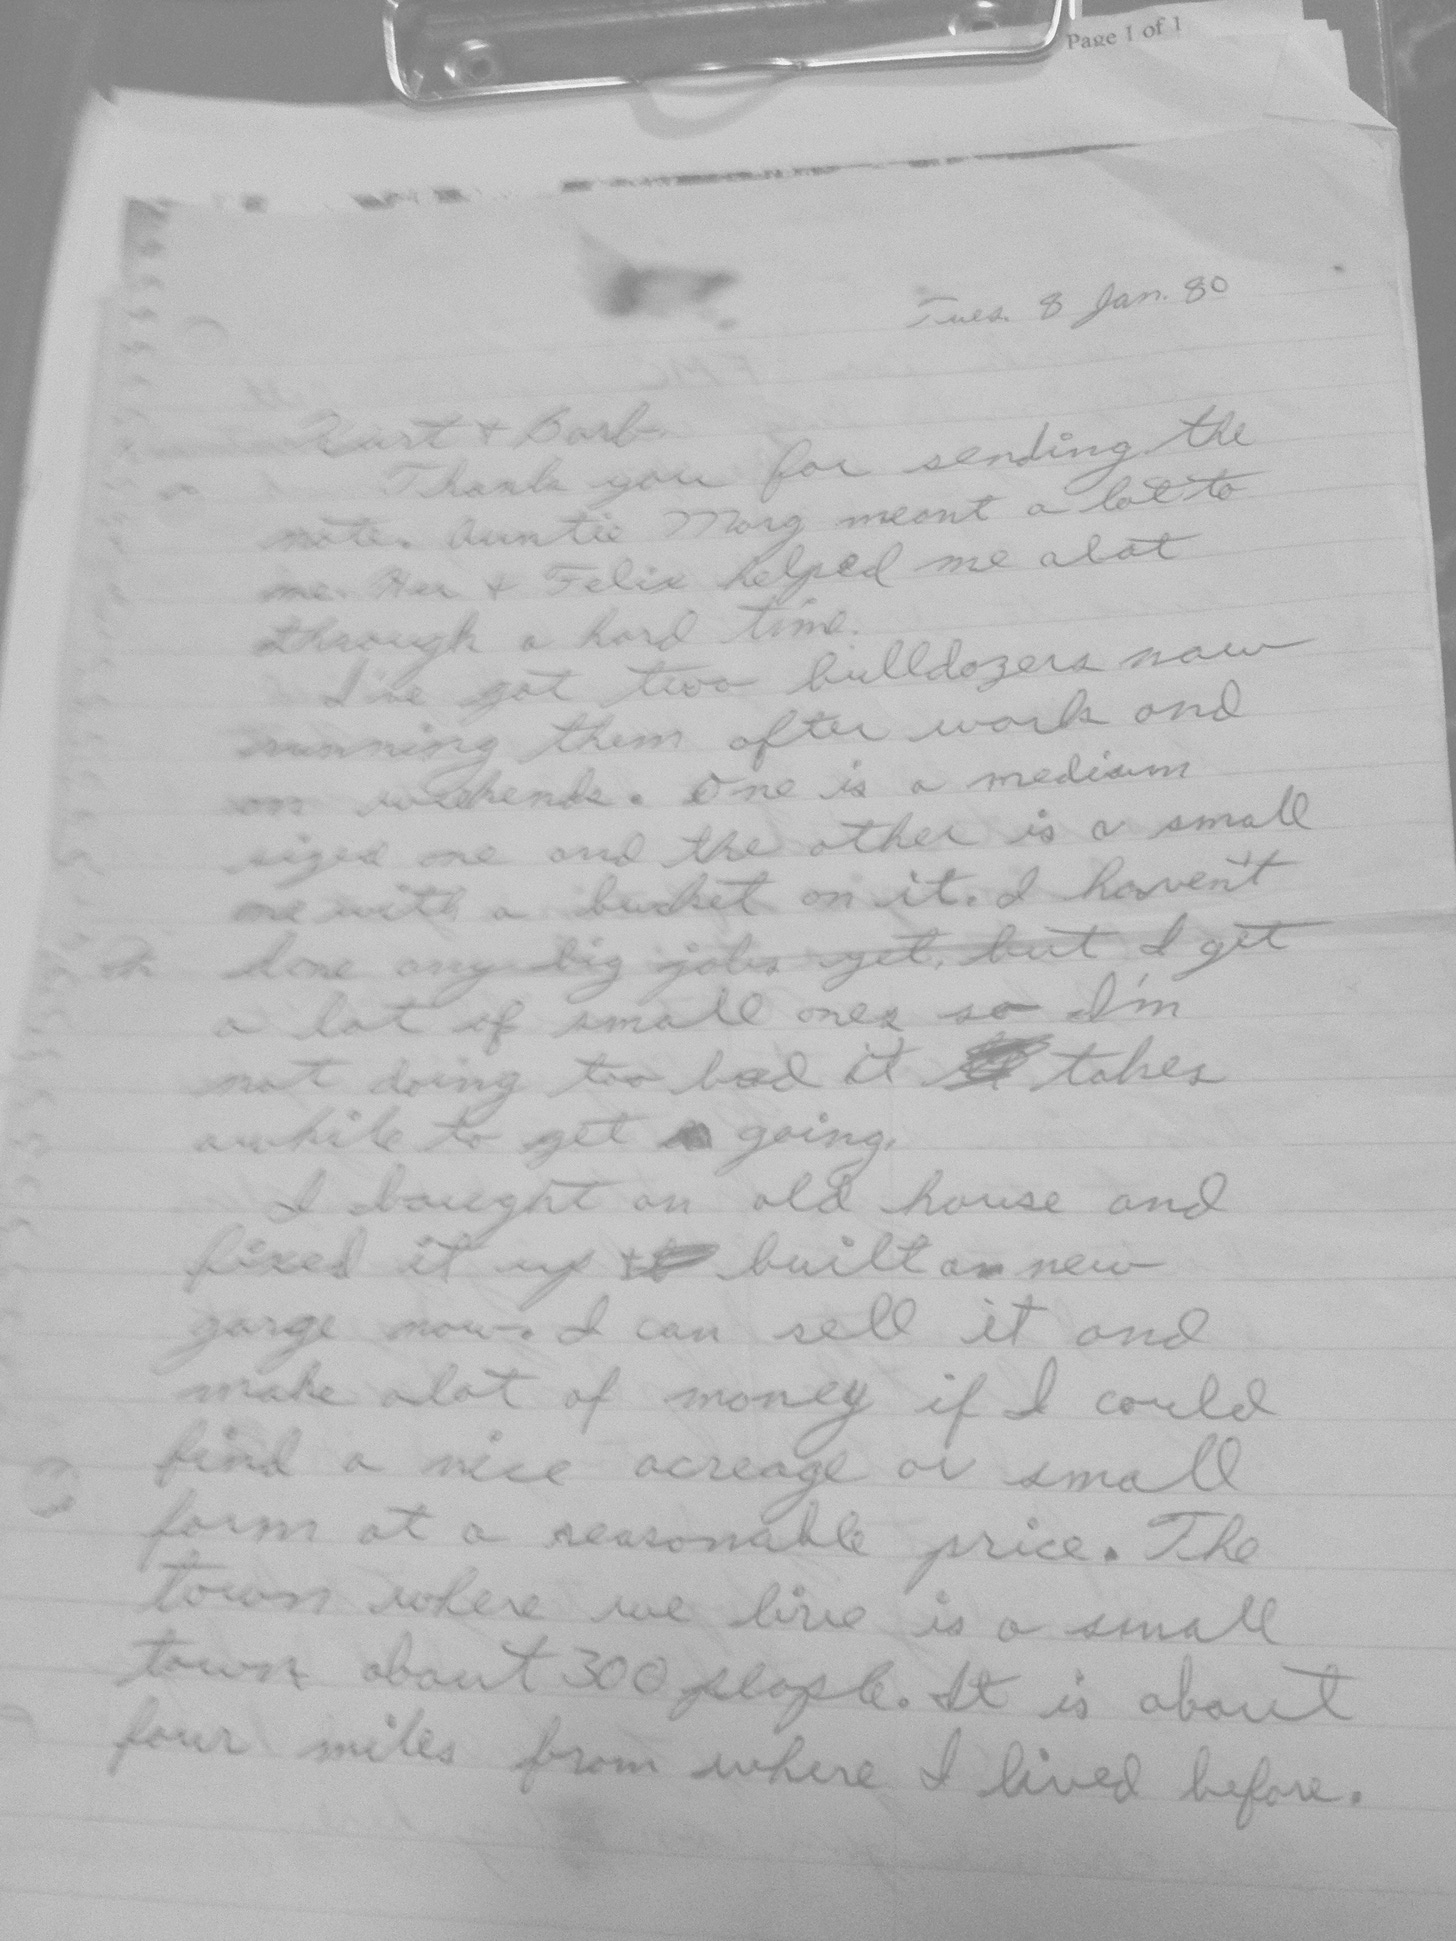 Page 1 of 1
Tues. 8 Jan. 80
Kurt + Barb
Thank you for sending the
note. Auntie Marg meant a lot to
me. Her + Felix helped me alot
through a hard time.
I've got two bulldozers now
running them after work and
on weekends. One is a medium
sized one and the other is a small
one with a bucket on it. I haven't
done any big jobs yet, but I get
a lot of small ones so I'm
not doing too bad it takes
awhile to get going.
I bought an old house and
fixed it up + built a new
garge now. I can sell it and
make alot of money if I could
find a nice acreage or small
farm at a reasonable price. The
town where we live is a small
town about 300 people. It is about
four miles from where I lived before.